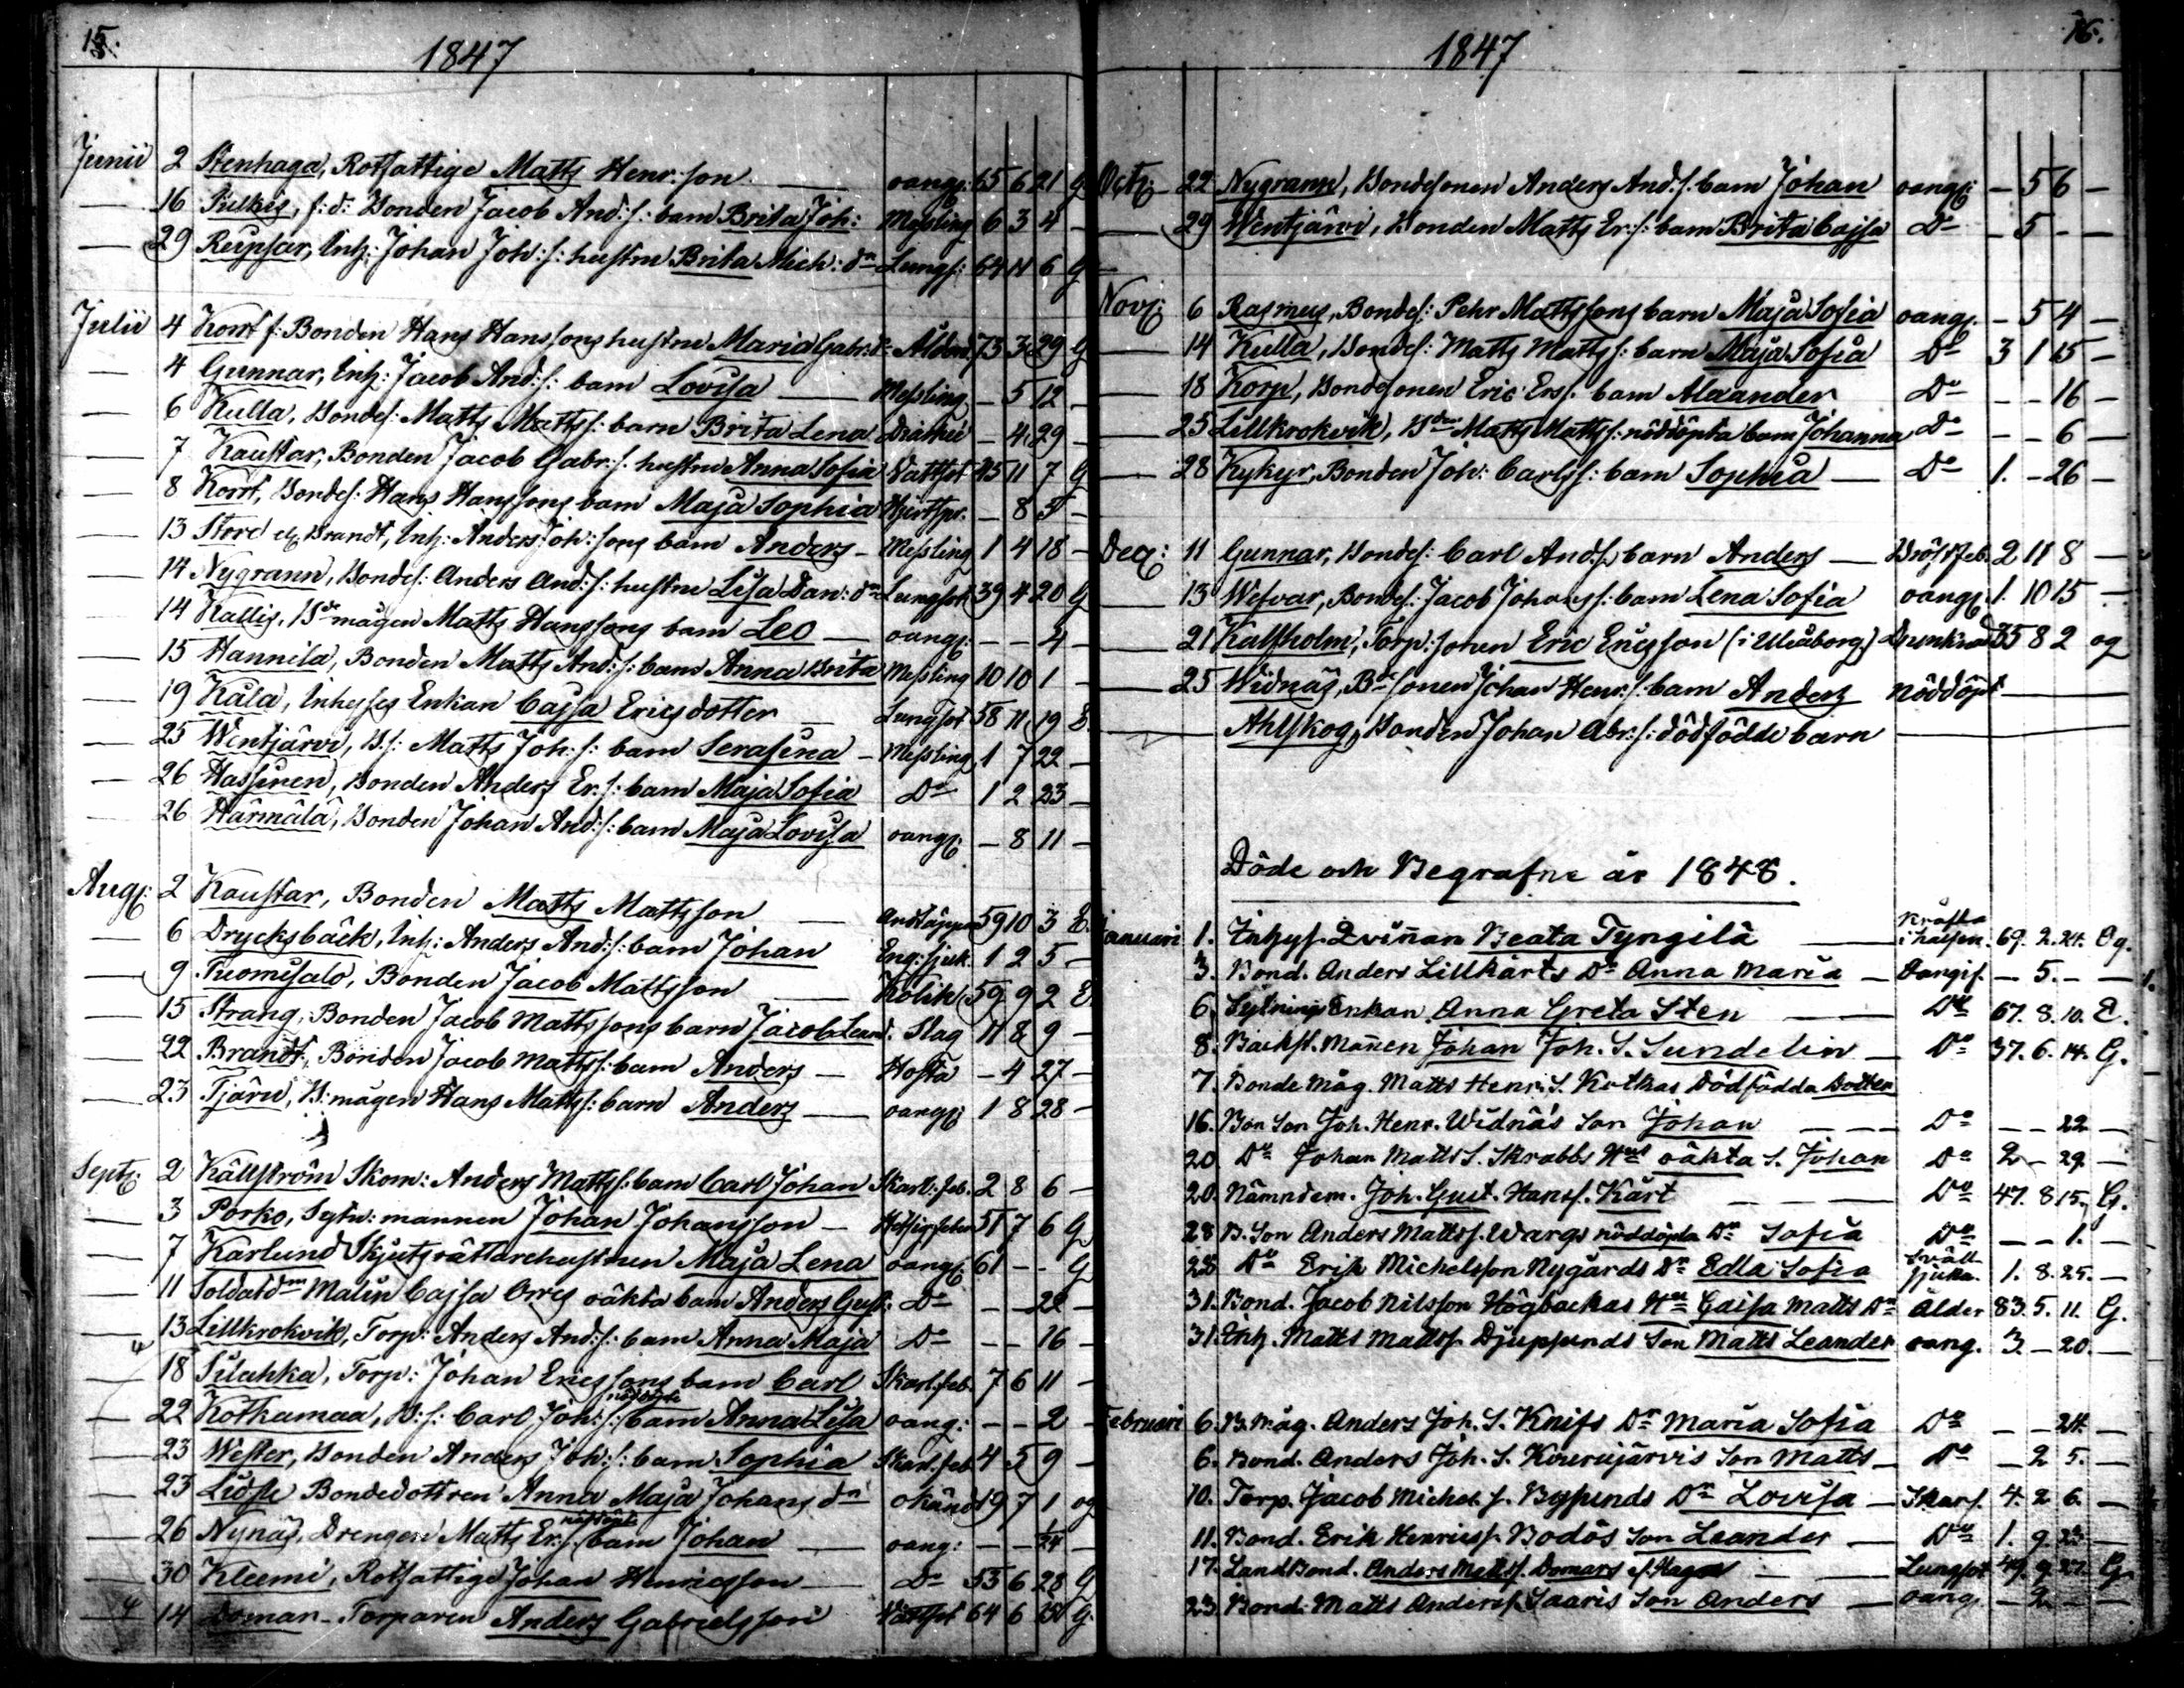 15.
1847
Junii 2 Stenhaga, Rotfattige Matts Henr:son — oangs: 65 6 21 G
— 16 Pulkis, f:d: Bonden Jacob And:s: barn Brita Joh: Messling 6 3 4 —
— 29 Inh: Johan Joh:s: hustru Brita Mich:dr Lungs: 64 11 6 G
Julii 4 Korrf f: Bonden Hans Hanssons hustru Maria Gabr:dr Ålder 73 3 29 G
— 4 Gunnar, Inh: Jacob And:s: barn Lovisa — Messling — 5 12 —
— 6 Kulla, Bondes: Matts Matts:s: barn Brita Lena — 4 29 —
— 7 Kaustar, Bonden Jacob Gabr:s. hustru Anna Sofia Vattsot 45 11 7 G
— 8 Korrf, Bondes: Hans Hanssons barn Maja Sophia — 8 5 —
— 13 Store el. Brandt, Inh: Anders Joh:sons barn Anders — Messling 1 4 18 —
— 14 Nygrann, Bondes: Anders And:s: hustru Lisa Dan:dr Lungsot 39 4 20 G
— 14 Kallis, Bde mågen Matts Hanssons barn Leo — oangs: — — 4 —
— 15 Hannila, Bonden Matts And:s: barn Anna Brita Messling 10 10 1 —
— 19 Kåla, Inhyses Enkan Cajsa Ericsdotter — Lungsot 58 11 19 E.
— 25 Wentjärvi, B.s: Matts Joh:s: barn Serafina — Messling 1 7 22 —
— 26 Hassinen, Bonden Anders Er.s: barn Maja Sofia Do 1 2 23 —
— 26 Härmälä, Bonden Johan And:s: barn Maja Lovisa oangs: — 8 11 —
Aug: 2 Kaustar, Bonden Matts Mattsson — Andtäppa 59 10 3 E.
— 6 Drycksbäck, Inh: Anders And:s: barn Johan Eng: sjuk. 1 2 5 —
— 9 Tuomisalo, Bonden Jacob Mattsson — Kolik 59 9 2 E.
— 15 Strang, Bonden Jacob Matts sons barn Jacob Leand. Slag 11 8 9 —
— 22 Brandt, Bonden Jacob Matts s: barn Anders — Hosta — 4 27 —
— 23 Tjäru, B: mågen Hans Matts s: barn Anders — oangs: 1 8 28 —
Sept: 2 Källström Skom: Anders Matts s. barn Carl Johan Skarl: feb. 2 8 6 —
— 3 Porko, Sytn: mannen Johan Johansson — 51 7 6 G
— 7 Karlund Skjutsrättarehustrun Maja Lena oangs: 61 — — G
— 11 Soldatdrn Malin Cajsa oäkta barn Anders Gust: Do — — 22 —
— 13 Lillkrokvik, Torp: Anders And:s: barn Anna Maja Do — — 16 —
— 18 Torp: Johan Ericssons barn Carl Skarl. feb. 7 6 11 —
— 22 Kotkamaa, B:s: Carl Joh:s: nöddöpte barn Anna Lisa oang: — — 2 —
— 23 Wester, Bonden Anders Joh:s: barn Sophia Skarl. feb. 4 5 9 —
— 23 Lidste Bondedottren Anna Maja Johans dr okänd 19 7 1 og
— 26 Nynäs, Drengen Matts Er:s. nöddöpte barn Johan — oang: — —
— 30 Kleemi, Rotfattige Johan Henricsson — Do 53 6 28 G
14 Doman — Torparen Anders Gabrielsson Vattsot 64 6 G.
16.
1847
Octr: 22 Nygrann, Bondesonen Anders And:s. barn Johan oangs: — 5 6 —
— 29 Wentjärvi, Bonden Matts Er:s: barn Brita Cajsa Do — 5 — —
Nov: 6 Rasmus, Bondes: Pehr Mattssons barn Maja Sofia oangs. — 5 4 —
— 14 Kulla, Bondes: Matts Matts s: barn Maja Sofia Do 3 1 15 —
— 18 Korp, Bondesonen Eric Ers s. barn Alexander Do — — 16 —
— 25 Lillkrokvik, Matts Matts s: nöddöpta barn Johanna Do — — 6 —
— 28 Kykyr, Bonden Joh: Carls s: barn Sophia — Do 1. — 26 —
Dec: 11 Gunnar, Bondes: Carl And:s. barn Anders — Bröstfeb. 2 11 8 —
— 13 Wesvar, Bondes: Jacob Johans s: barn Lena Sofia oangs. 1. 10 15 —
— 21 Kalfholm, Torp: sonen Eric Ericsson (i Uleåborg) Drunknad 35 8 2 og
— 25 Widnäs, Bde sonen Johan Henr:s. barn Anders nöddöpt —
Ahlskog, Bonden Johan Abr:s: dödfödde barn —
Döde och Begrafne år 1848.
Januari 1. Inhys. Qvinnan Beata Tyngilä — Kräfta i halsen. 69. 2. 24. Og.
3. Bond. Anders Lillkärts Dr Anna Maria — Oangif. — 5. — —
6. Sytnings Enkan Anna Greta Sten — Do 67. 8. 10. E.
8. Backst. Mannen Johan Joh. S. Sundelin — Do 37. 6. 14. G.
7. Bonde Måg. Matts Henr. S. Kotkas Dödfödda Dotter
16. Bon Son Joh. Henr. Widnäs Son Johan — Do — — 22 —
20. Do Johan Matts S. Skrabbs Hus oäkta S. Johan Do 2 — 29. —
20. Nämndem. Joh. Gust. Hanss. Kärt — Do 47. 8. 15. G.
28. B. Son Anders Matts s. Wargs nöddöpta Dr Sofia Do — — 1. —
28. Do Erik Michelsson Nygårds Dr Edla Sofia Svält sjuka. 1. 8. 25. —
31. Bond. Jacob Nilsson Högbackas Hu Caisa Matts Dr Ålder 83. 5. 11. G.
31. Inh. Matts Matts s. Djupsunds Son Matts Leander oang. 3. — 20. —
Februari 6. B. Måg. Anders Joh. S. Knifs Dr Maria Sofia Do — — 24. —
6. Bond. Anders Joh. S. Kourujärvis Son Matts — Do — 2 5. —
10. Torp. Jacob Michel. s. Bysunds Dr Lovisa — Skarl. 4. 2 6. —
11. Bond. Erik Henrics s. Bodös Son Leander — Do 1. 9 —
17. Land Bond. Anders Matts s. Domars — Lungsot 49. 9. 27. G.
23. Bond. Matts Anders s. Saaris Son Anders — oang. — 2 — —